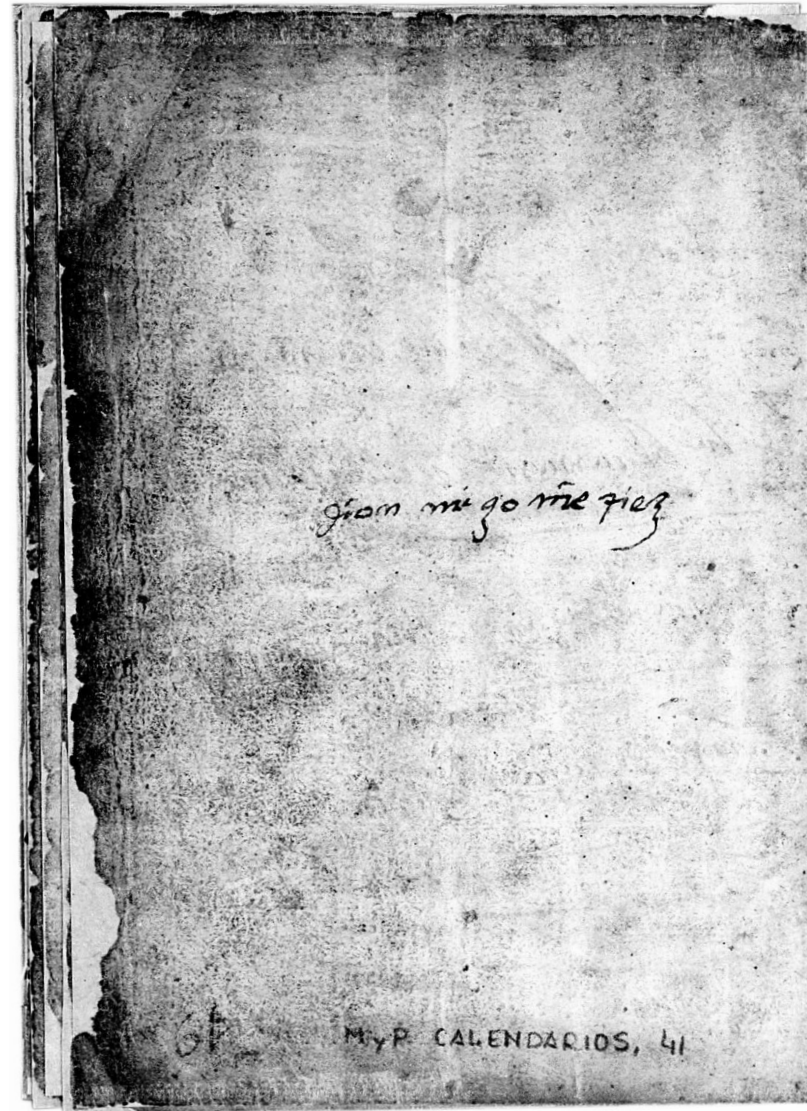 gion mi go me tiez
61
MyP CALENDARIOS, 41